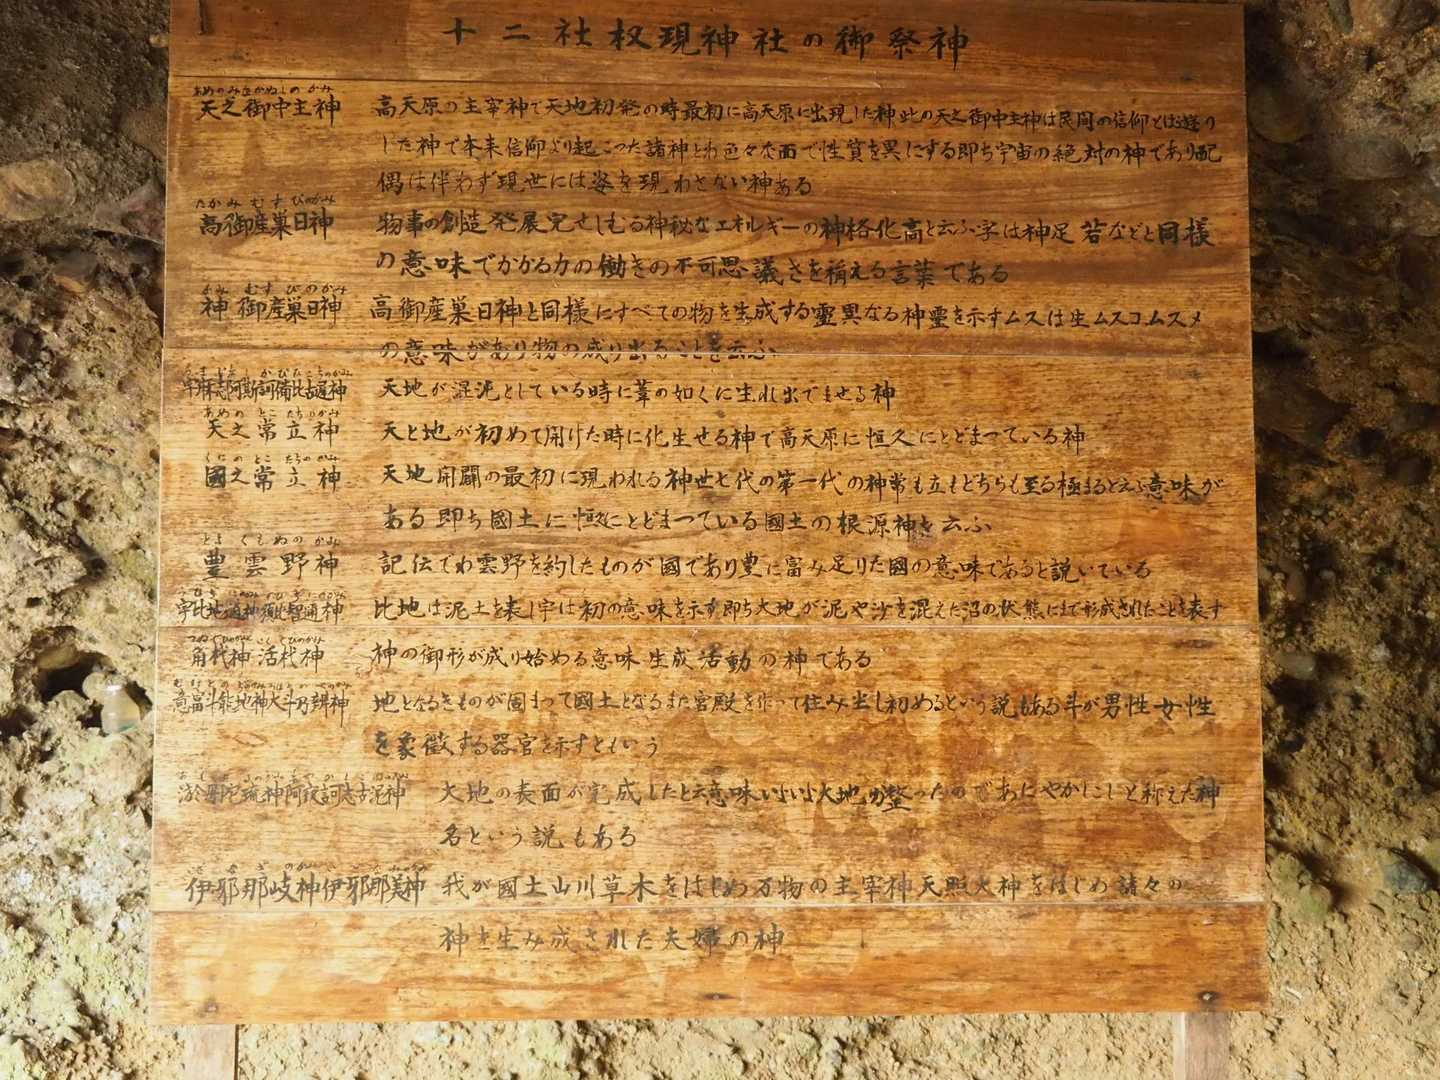 十二社权現神社の御祭神
あめのみなかぬしのかみ
天之御中主神 高天原の主宰神で天地初発の時最初に高天原に出現した神此の天之御中主神は民間の信仰とは違り
した神で本来信仰より起こつた諸神とわ色々な面で性質を異にする即ち宇宙の絶対の神であり配
偶は伴わず現世には姿を現わさない神ある
たかみむすびのかみ
高御産巣日神 物事の創造発展完せしむる神秘なエネルギーの神格化高と云ふ字は神足若などと同様
の意味でかかる力の働きの不可思議さを稱える言葉である
かみむすびのかみ
神御産巣日神 高御産巣日神と同様にすべての物を生成する靈異なる神靈を示すムスは生ムスコムスメ
の意味があり物の成り出ることを云ふ
宇麻志阿斯訶備比古遅神 天地が混沌としている時に葦の如くに生れ出でませる神
あめのとこたちのかみ
天之常立神 天と地が初めて開けた時に化生せる神で高天原に恒久にとどまつている神
くにのとこたちのかみ
國之常立神 天地開闢の最初に現われる神世七代の第一代の神常も立もどちらも至る極まると云ふ意味が
ある即ち國土に恒久にとどまつている國土の根源神を云ふ
とよくもぬのかみ
豊雲野神 記伝でわ雲野を約したものが國であり豊に富み足りた國の意味であると説いている
宇比地邇神須比智邇神 比地は泥土を表し宇は初の意味を示す即ち大地が泥や沙を混えた沼の状態にまで形成されたことを表す
つぬぐひのかみいくぐひのかみ
角杙神活杙神 神の御形が成り始める意味生成活動の神である
意富斗能地神大斗乃辨神 地となるきものが固まつて國土となるまた宮殿を作つて住み出し初めるという説もある斗が男性女性
を象徴する器官を示すともいう
於母陀琉神阿夜訶志古泥神 大地の表面が完成したと云意味いよいよ大地が整つたのであにやかにしと称えた神
名という説もある
伊邪那岐神伊邪那美神 我が國土山川草木をはじめ万物の主宰神天照大神をはじめ諸々の
神を生み成された夫婦の神